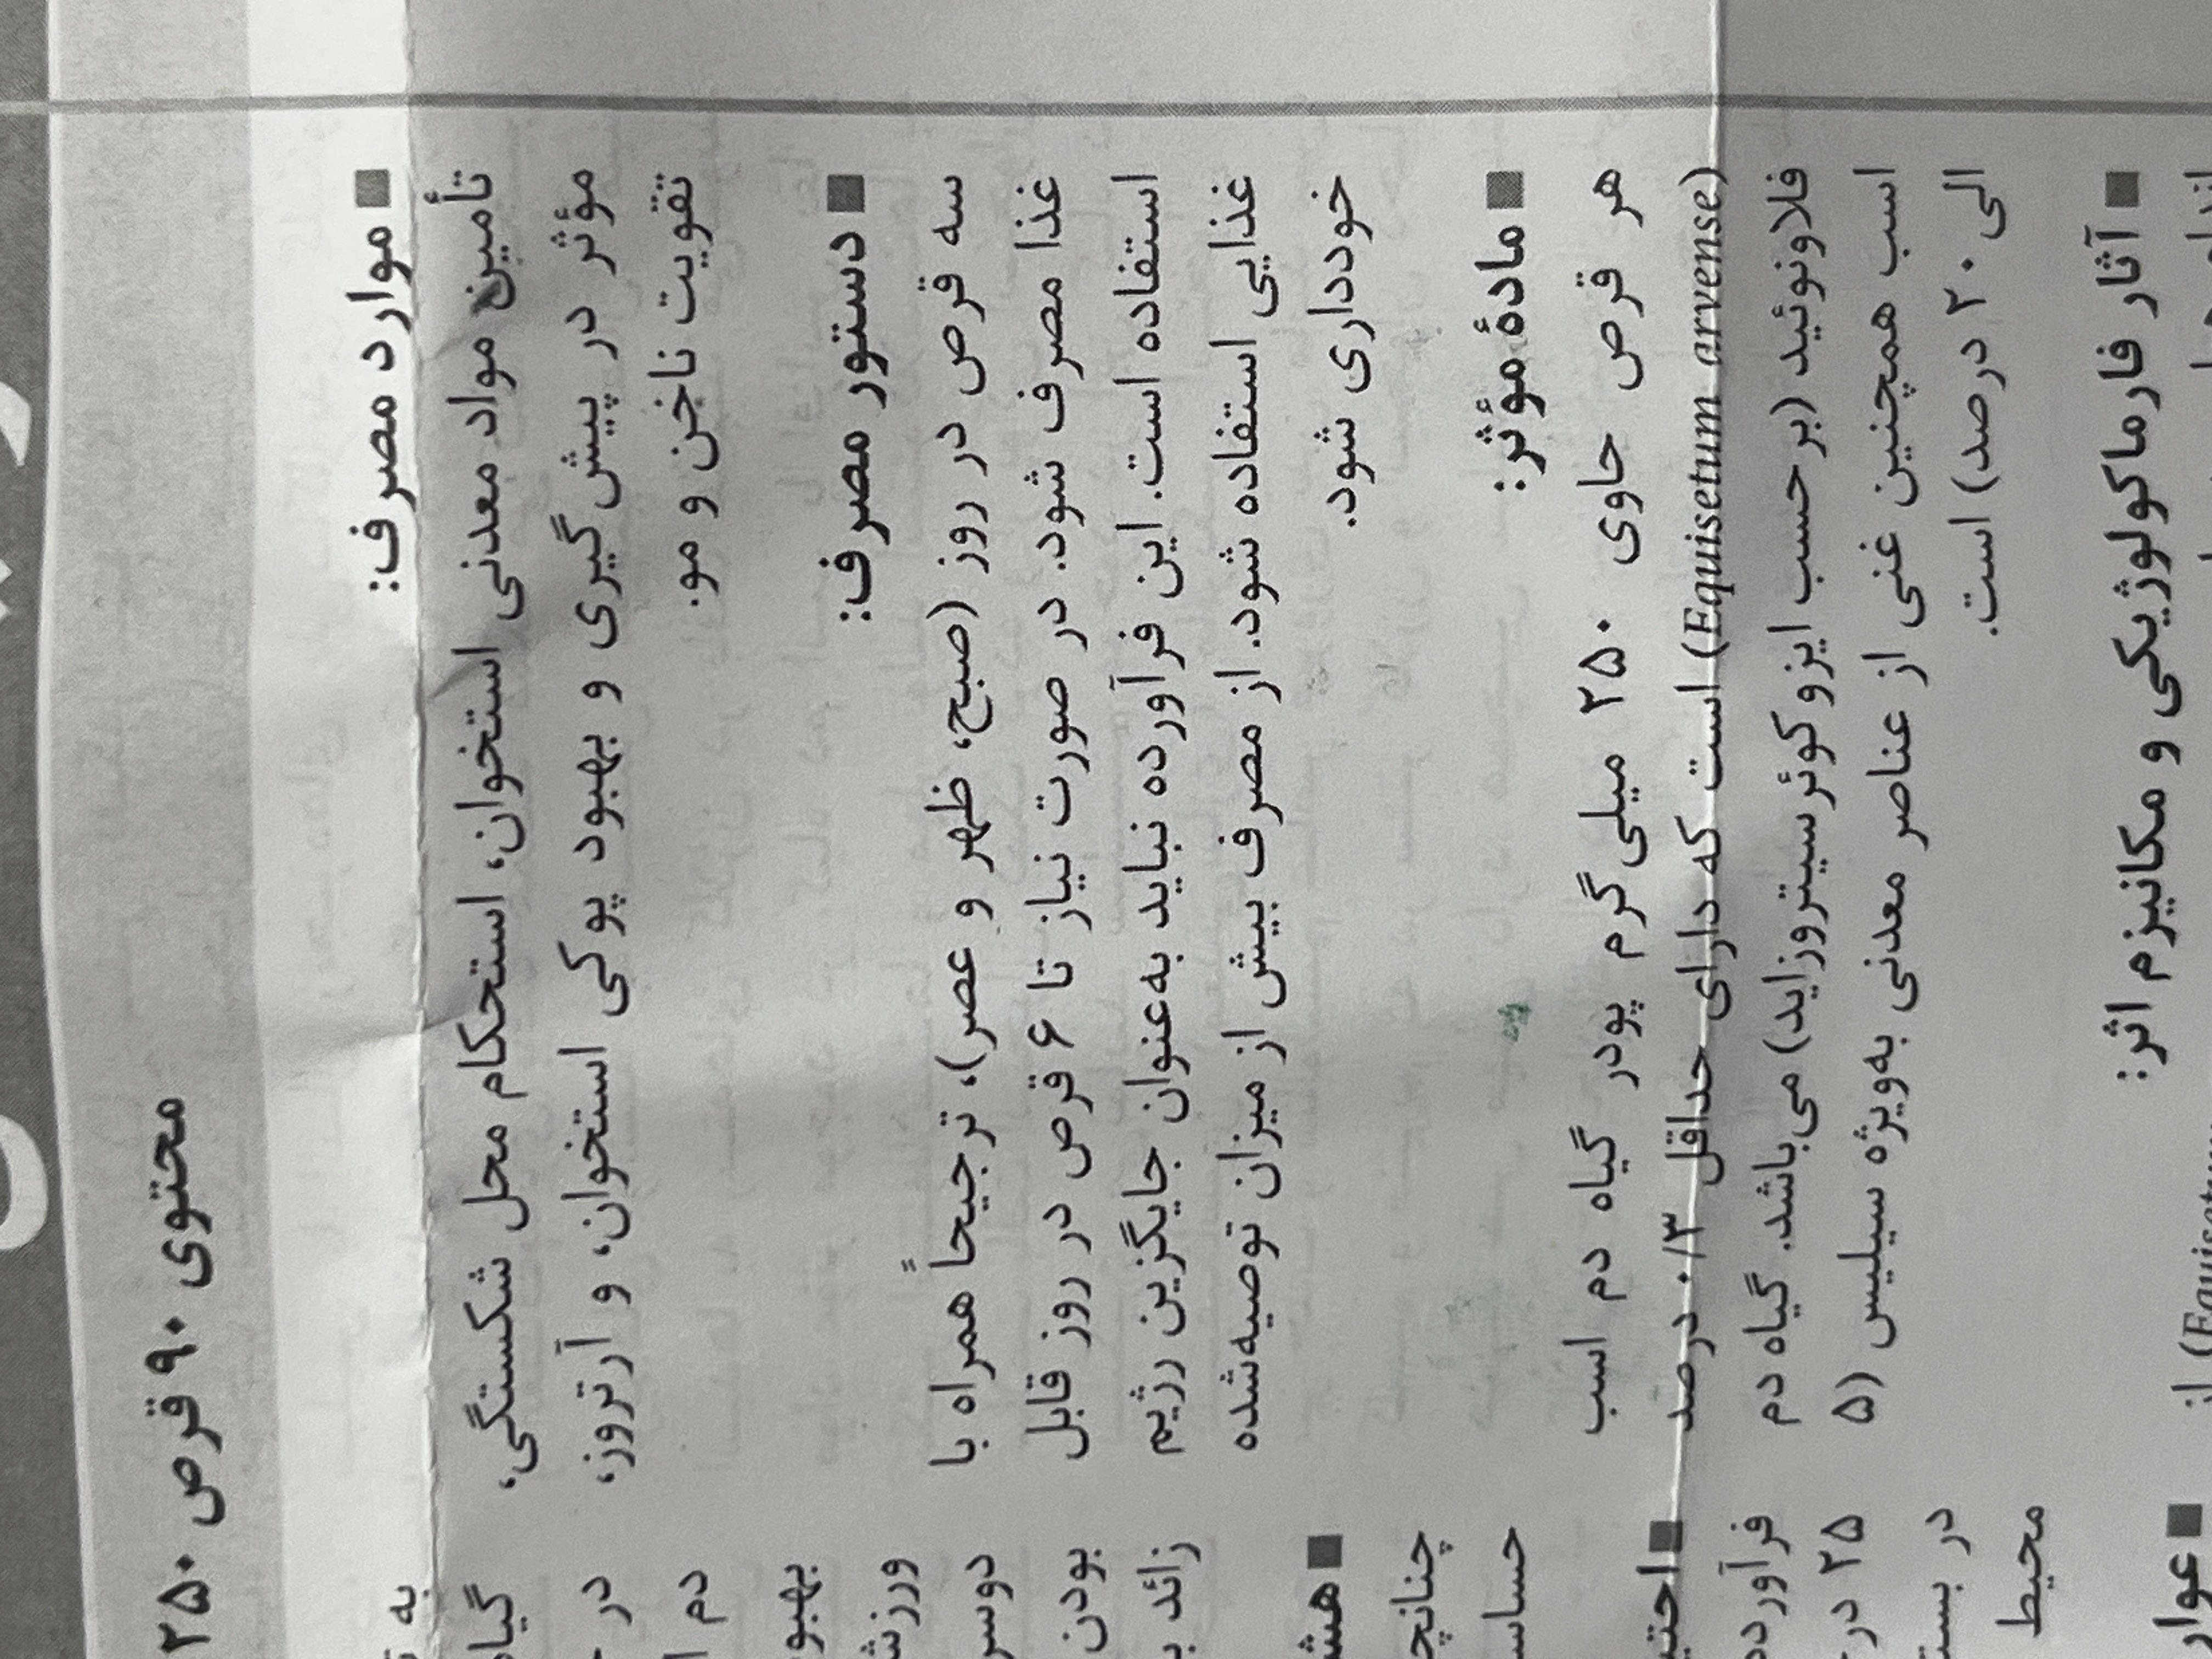 محتوی ۹۰ قرص ۲۵۰
■ موارد مصرف:
تأمین مواد معدنی استخوان، استحکام محل شکستگی،
مؤثر در پیش‌گیری و بهبود پوکی استخوان، و آرتروز،
تقویت ناخن و مو.
■ دستور مصرف:
سه قرص در روز (صبح، ظهر و عصر)، ترجیحاً همراه با
غذا مصرف شود. در صورت نیاز تا ۶ قرص در روز قابل
استفاده است. این فرآورده نباید به‌عنوان جایگزین رژیم
غذایی استفاده شود. از مصرف بیش از میزان توصیه‌شده
خودداری شود.
■ مادهٔ مؤثر:
هر قرص حاوی ۲۵۰ میلی‌گرم پودر گیاه دم اسب
(Equisetum arvense) است که دارای حداقل ۰/۳ درصد
فلاونوئید (بر حسب ایزوکوئرسیتروزاید) می‌باشد. گیاه دم
اسب همچنین غنی از عناصر معدنی به‌ویژه سیلیس (۵
الی ۲۰ درصد) است.
■ آثار فارماکولوژیکی و مکانیزم اثر:
به
در
دم
بودن
زائد
■
چنانچ
■
۲۵ در
در
محیط
■